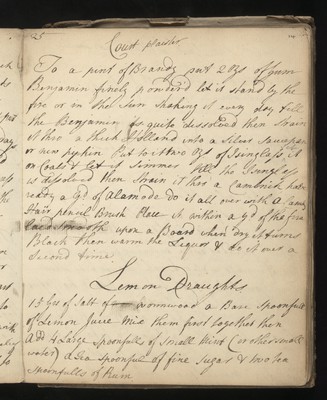 25
Court plaister
To a pint of Brandy put 2 ozs of gum
Benjamin finely powder'd let it stand by the
fire or in the Sun shaking it every day till
the Benjamin is quite dissolved then strain
it thro a thick Holland into a Silver Saucepan
or new pipkin Put to it two ozs of Isinglass, it
on Coals & let it Simmer till the Isinglass
is dissolved then strain it thro a Cambrick have
ready a yd of alamode do it all over with a
Hair pencil Brush Place it within a yd of the fire
upon a Board when dry it turns
Black then warm the Liquor & do it over a
Second time.
Lemon Draughts
15 Grs of Salt of wormwood a Bare Spoonfull
of Lemon Juice mix them first together then
add 4 Large Spoonfulls of Small Mint (or other small
water) a Tea Spoonfull of fine Sugar & two
Spoonfulls of Rum